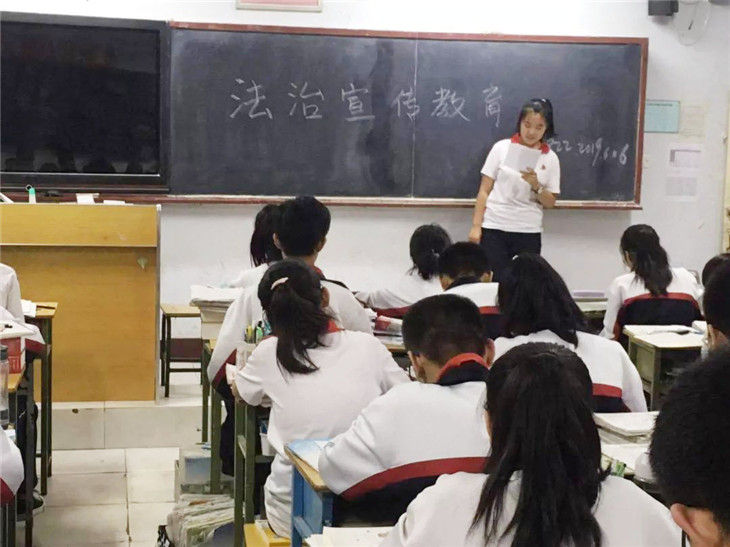 法治宣传教育
2019.6.6